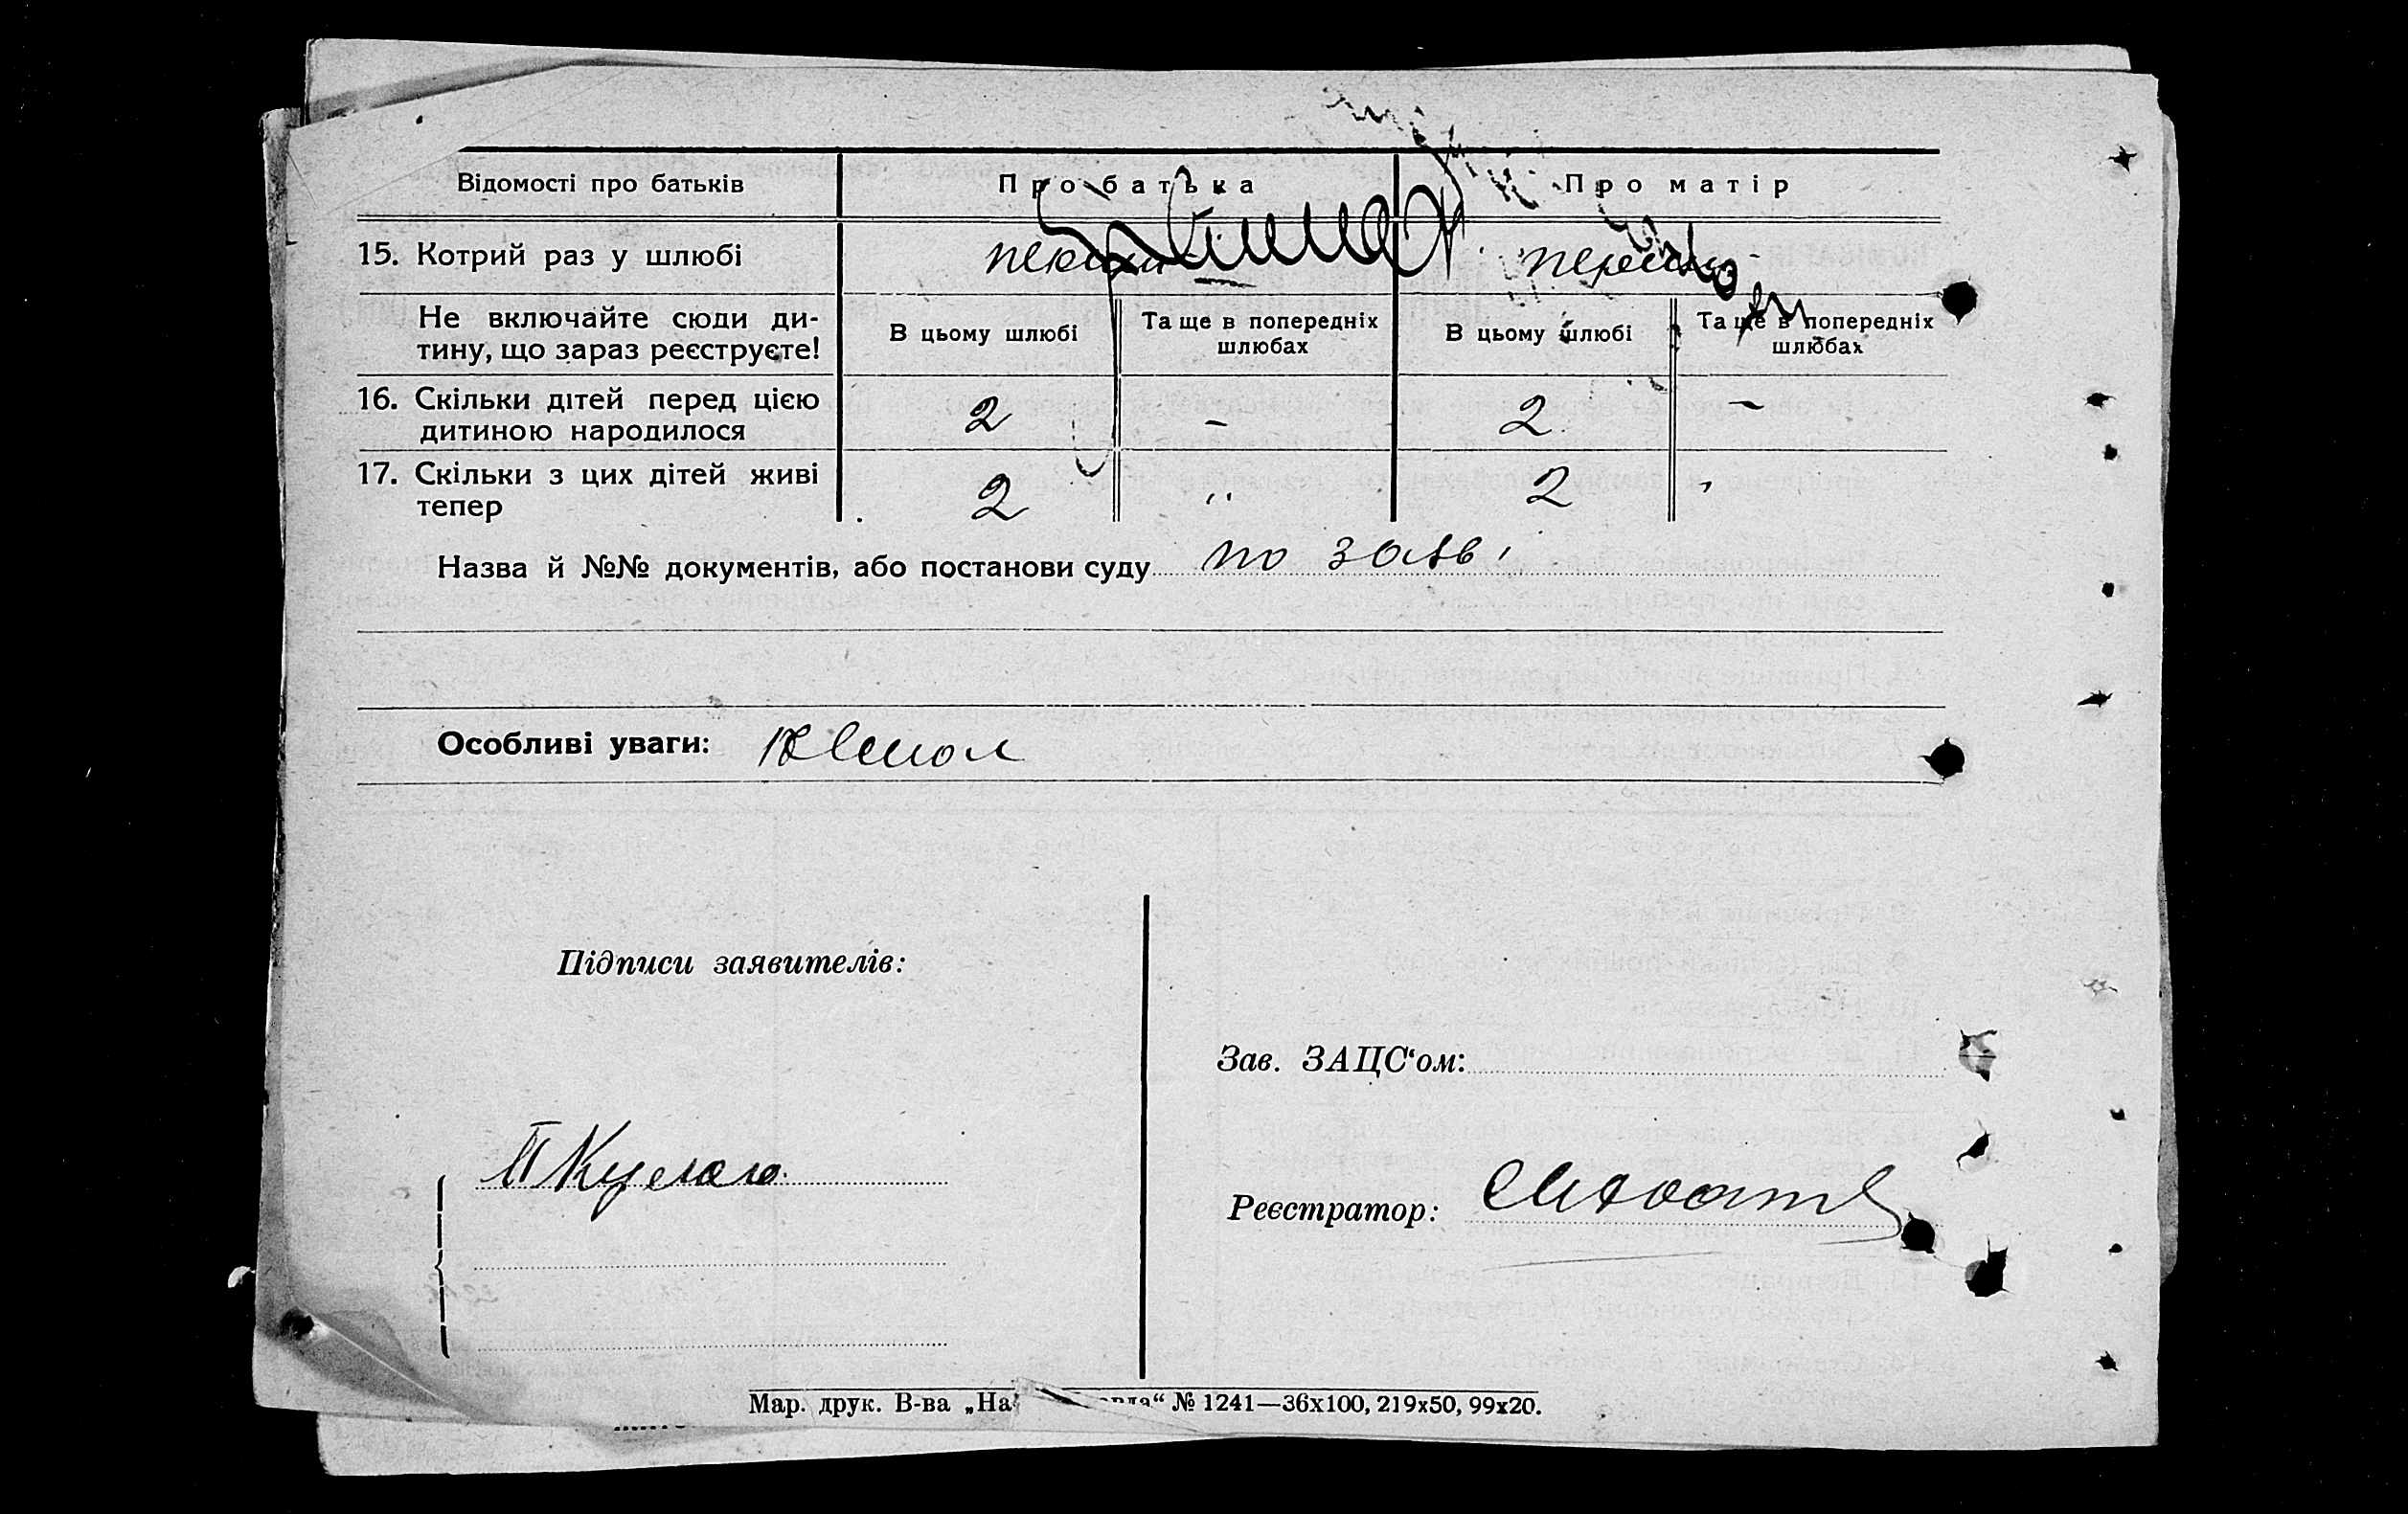 Відомості про батьків Про батька Про матір
15. Котрий раз у шлюбі
Не включайте сюди ди-
тину, що зараз реєструєте!
В цьому шлюбі Та ще в попередніх шлюбах В цьому шлюбі Та ще в попередніх шлюбах
16. Скільки дітей перед цією
дитиною народилося 2 - 2 -
17. Скільки з цих дітей живі
тепер 2 " 2 '
Назва й №№ документів, або постанови суду по заяві
Особливі уваги:
Підписи заявителів:
Зав. ЗАЦС'ом:
Реєстратор:
Мар. друк. В-ва „На вда“ № 1241—36x100, 219x50, 99x20.